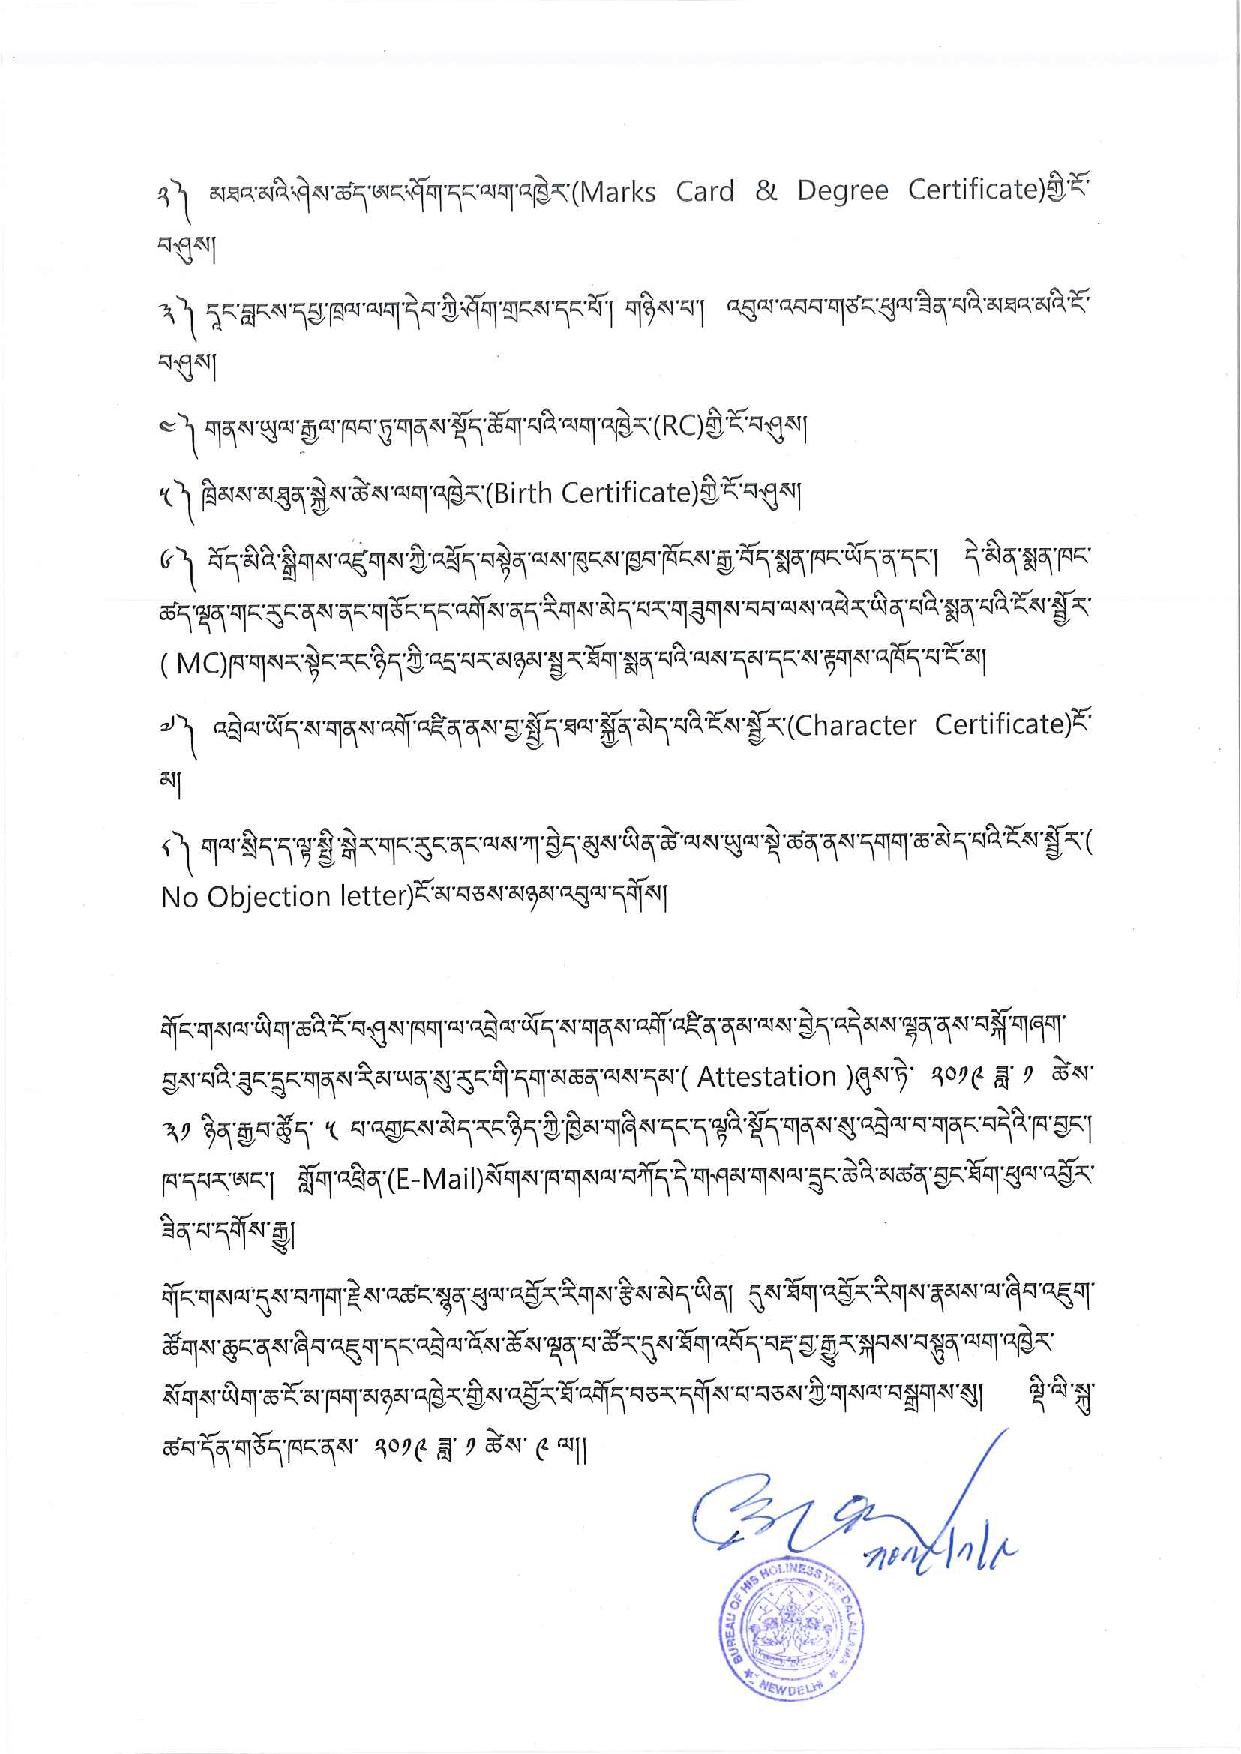 ༢༽ མཐའ་མའི་ཤེས་ཚད་ཨང་ཤོག་དང་ལག་འཁྱེར་(Marks Card & Degree Certificate)གྱི་ངོ་
བཤུས།
༣༽ དྭང་བླངས་དཔྱ་ཁྲལ་ལག་དེབ་ཀྱི་ཤོག་གྲངས་དང་པོ། གཉིས་པ། འབུལ་འབབ་གཙང་ཕུལ་ཟིན་པའི་མཐའ་མའི་ངོ་
བཤུས།
༤༽ གནས་ཡུལ་རྒྱལ་ཁབ་ཏུ་གནས་སྡོད་ཆོག་པའི་ལག་འཁྱེར་(RC)གྱི་ངོ་བཤུས།
༥༽ ཁྲིམས་མཐུན་སྐྱེས་ཚེས་ལག་འཁྱེར་(Birth Certificate)གྱི་ངོ་བཤུས།
༦༽ བོད་མིའི་སྒྲིགས་འཛུགས་ཀྱི་འཕྲོད་བསྟེན་ལས་ཁུངས་ཁྱབ་ཁོངས་རྒྱ་བོད་སྨན་ཁང་ཡོད་ན་དང་། དེ་མིན་སྨན་ཁང་
ཚད་ལྡན་གང་རུང་ནས་ནང་གཅོང་དང་འགོས་ནད་རིགས་མེད་པར་གཟུགས་བབ་ལས་འཕེར་ཡིན་པའི་སྨན་པའི་ངོས་སྦྱོར་
( MC)ཁ་གསར་སྟེང་རང་ཉིད་ཀྱི་འདྲ་པར་མཉམ་སྦྱར་ཐོག་སྨན་པའི་ལས་དམ་དང་ས་རྟགས་འཁོད་པ་ངོ་མ།
༧༽ འབྲེལ་ཡོད་ས་གནས་འགོ་འཛིན་ནས་བྱ་སྤྱོད་ཐལ་སྐྱོན་མེད་པའི་ངོས་སྦྱོར་(Character Certificate)ངོ་
མ།
༨༽ གལ་སྲིད་ད་ལྟ་སྤྱི་སྒེར་གང་རུང་ནང་ལས་ཀ་བྱེད་མུས་ཡིན་ཚེ་ལས་ཡུལ་སྡེ་ཚན་ནས་དགག་ཆ་མེད་པའི་ངོས་སྦྱོར་(
No Objection letter)ངོ་མ་བཅས་མཉམ་འབུལ་དགོས།
གོང་གསལ་ཡིག་ཆའི་ངོ་བཤུས་ཁག་ལ་འབྲེལ་ཡོད་ས་གནས་འགོ་འཛིན་ནམ་ལས་བྱེད་འདེམས་ལྷན་ནས་བསྐོ་གཞག་
བྱས་པའི་ཟུང་དྲུང་གནས་རིམ་ཡན་སུ་རུང་གི་དག་མཆན་ལས་དམ་( Attestation )ཞུས་ཏེ་ ༢༠༡༩ ཟླ་ ༡ ཚེས་
༣༡ ཉིན་རྒྱབ་ཚོད་ ༥ པ་འགྱངས་མེད་རང་ཉིད་ཀྱི་ཁྱིམ་གཞིས་དང་ད་ལྟའི་སྡོད་གནས་སུ་འབྲེལ་བ་གནང་བདེའི་ཁ་བྱང་།
ཁ་དཔར་ཨང་། གློག་འཕྲིན་(E-Mail)སོགས་ཁ་གསལ་བཀོད་དེ་གཤམ་གསལ་དྲུང་ཆེའི་མཚན་བྱང་ཐོག་ཕུལ་འབྱོར་
ཟིན་པ་དགོས་རྒྱུ།
གོང་གསལ་དུས་བཀག་རྗེས་འཚང་སྙན་ཕུལ་འབྱོར་རིགས་རྩིས་མེད་ཡིན། དུས་ཐོག་འབྱོར་རིགས་རྣམས་ལ་ཞིབ་འཇུག་
ཚོགས་ཆུང་ནས་ཞིབ་འཇུག་དང་འབྲེལ་འོས་ཆོས་ལྡན་པ་ཚོར་དུས་ཐོག་འབོད་བརྡ་བྱ་རྒྱུར་སྐབས་བསྟུན་ལག་འཁྱེར་
སོགས་ཡིག་ཆ་ངོ་མ་ཁག་མཉམ་འཁྱེར་གྱིས་འབྱོར་ཐོ་འགོད་བཅར་དགོས་པ་བཅས་ཀྱི་གསལ་བསྒྲགས་སུ། ལྡི་ལི་སྐུ་
ཚབ་དོན་གཅོད་ཁང་ནས་ ༢༠༡༩ ཟླ་ ༡ ཚེས་ ༩ ལ།།
༢༠༡༩/༡/༩
BUREAU OF HIS HOLINESS THE DALAI LAMA
NEW DELHI